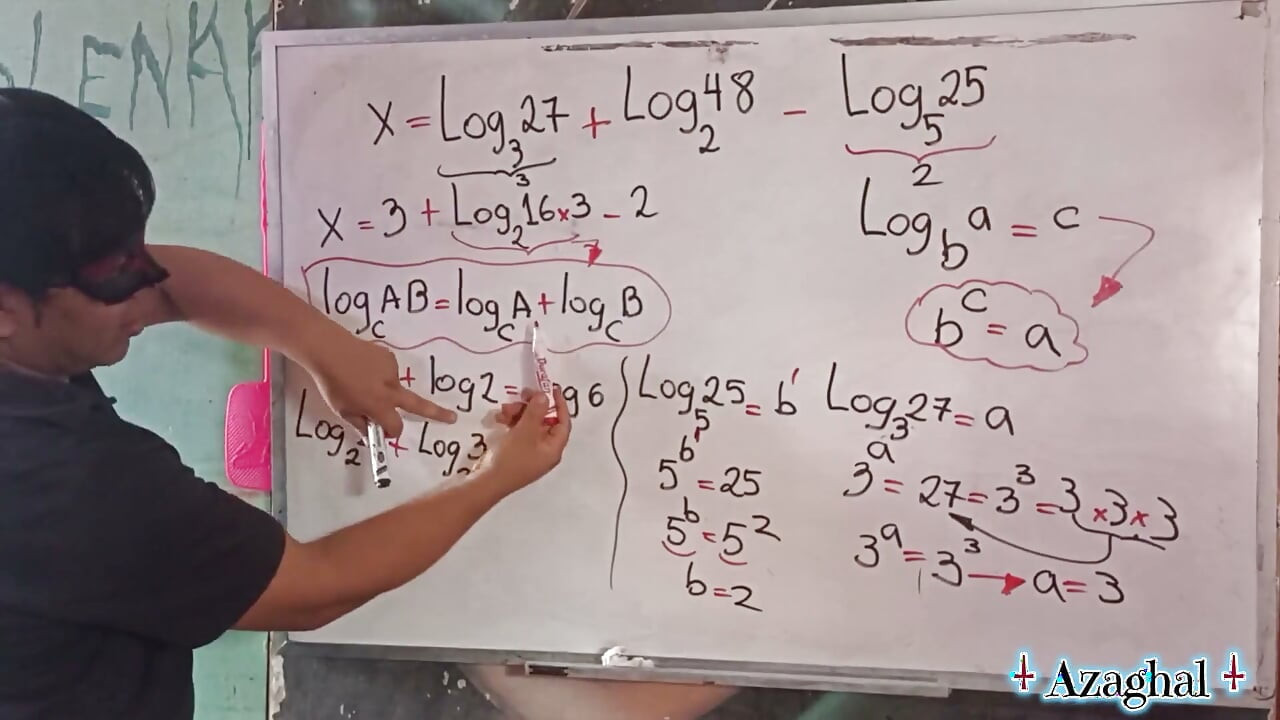 ENKA
X = Log₃27 + Log₂48 - Log₅25
3
2
X = 3 + Log₂16×3 - 2
Log_b a = c
b^c = a
log_c AB = log_c A + log_c B
+ log 2 = log 6
Log₂ + Log₂3
Log₅25 = b
5^b = 25
5^b = 5²
b = 2
Log₃27 = a
3^a = 27 = 3³ = 3×3×3
3^a = 3³ → a = 3
Azaghal